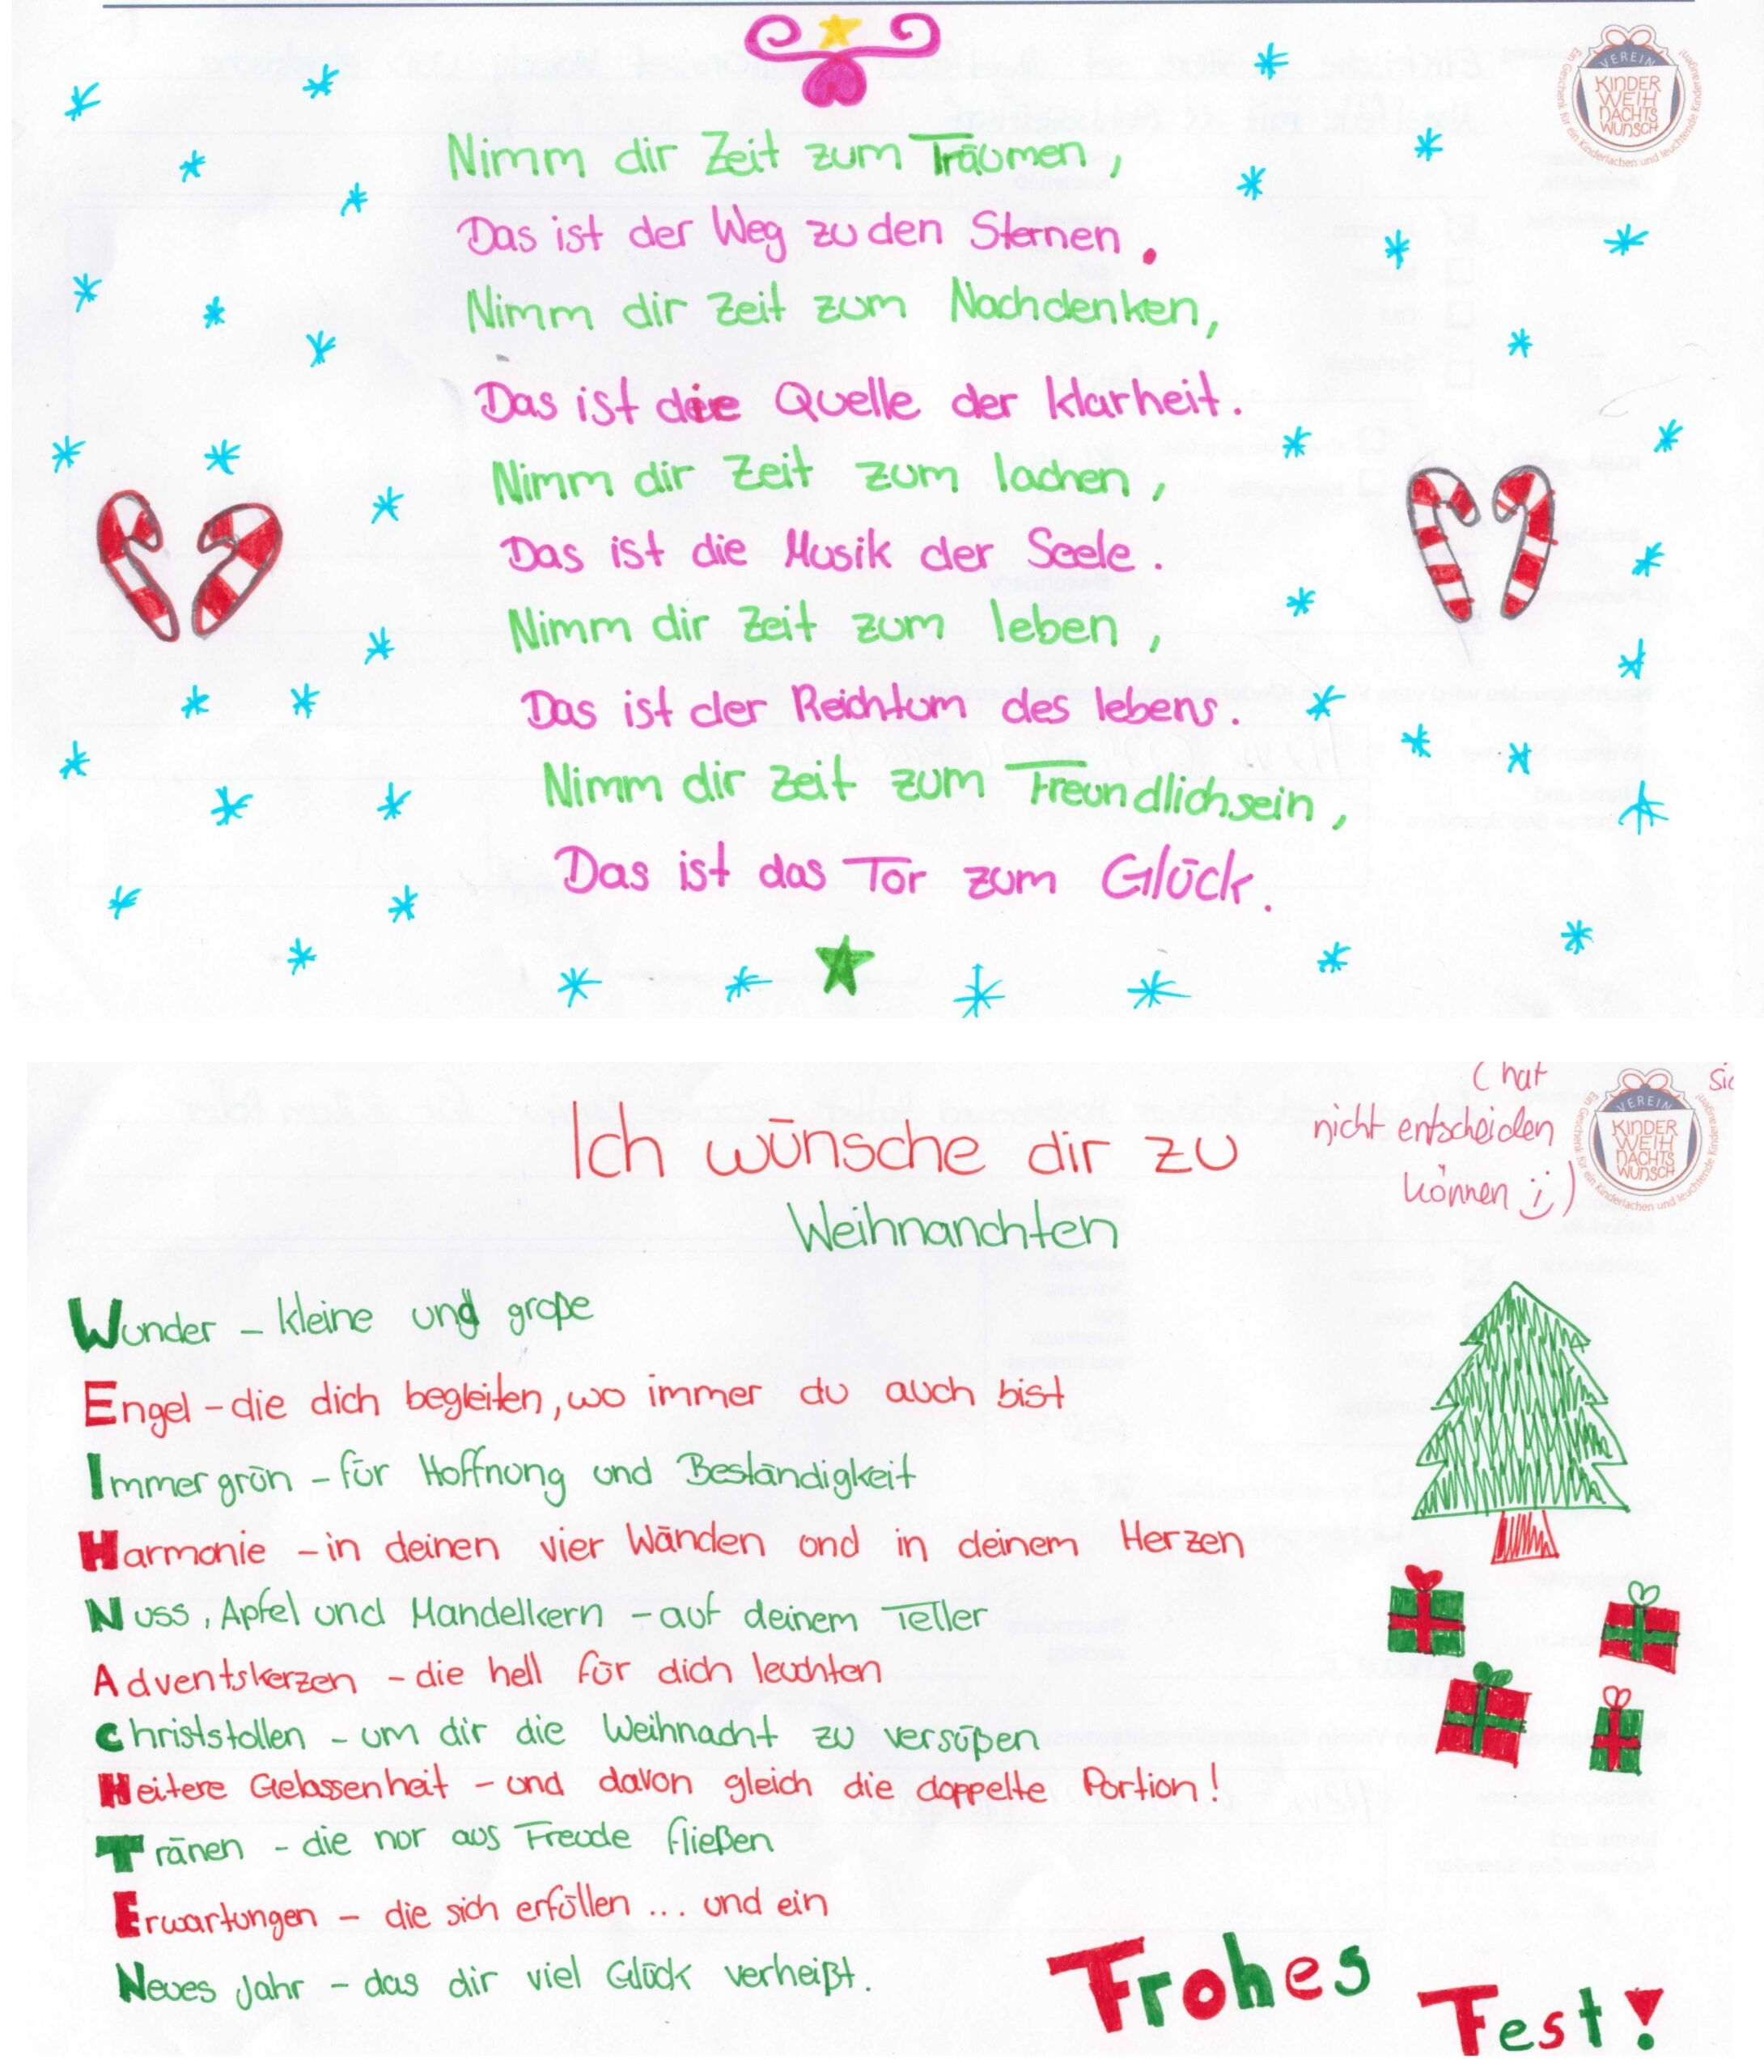 VEREIN
KINDER
WEIH
NACHTS
WUNSCH
Ein Geschenk für ein Kinderlachen und leuchtende Kinderaugen!
Nimm dir Zeit zum Träumen,
Das ist der Weg zu den Sternen.
Nimm dir Zeit zum Nachdenken,
Das ist die Quelle der Klarheit.
Nimm dir Zeit zum lachen,
Das ist die Musik der Seele.
Nimm dir Zeit zum leben,
Das ist der Reichtum des lebens.
Nimm dir Zeit zum Freundlichsein,
Das ist das Tor zum Glück.
(hat sic
nicht entscheiden
können ;))
VEREIN
KINDER
WEIH
NACHTS
WUNSCH
Ein Geschenk für ein Kinderlachen und leuchtende Kinderaugen!
Ich wünsche dir zu
Weihnanchten
Wunder – kleine und große
Engel – die dich begleiten, wo immer du auch bist
Immergrün – für Hoffnung und Beständigkeit
Harmonie – in deinen vier Wänden und in deinem Herzen
Nuss, Apfel und Mandelkern – auf deinem Teller
Adventskerzen – die hell für dich leuchten
Christstollen – um dir die Weihnacht zu versüßen
Heitere Gelassenheit – und davon gleich die doppelte Portion!
Tränen – die nur aus Freude fließen
Erwartungen – die sich erfüllen ... und ein
Neues Jahr – das dir viel Glück verheißt.
Frohes
Fest!